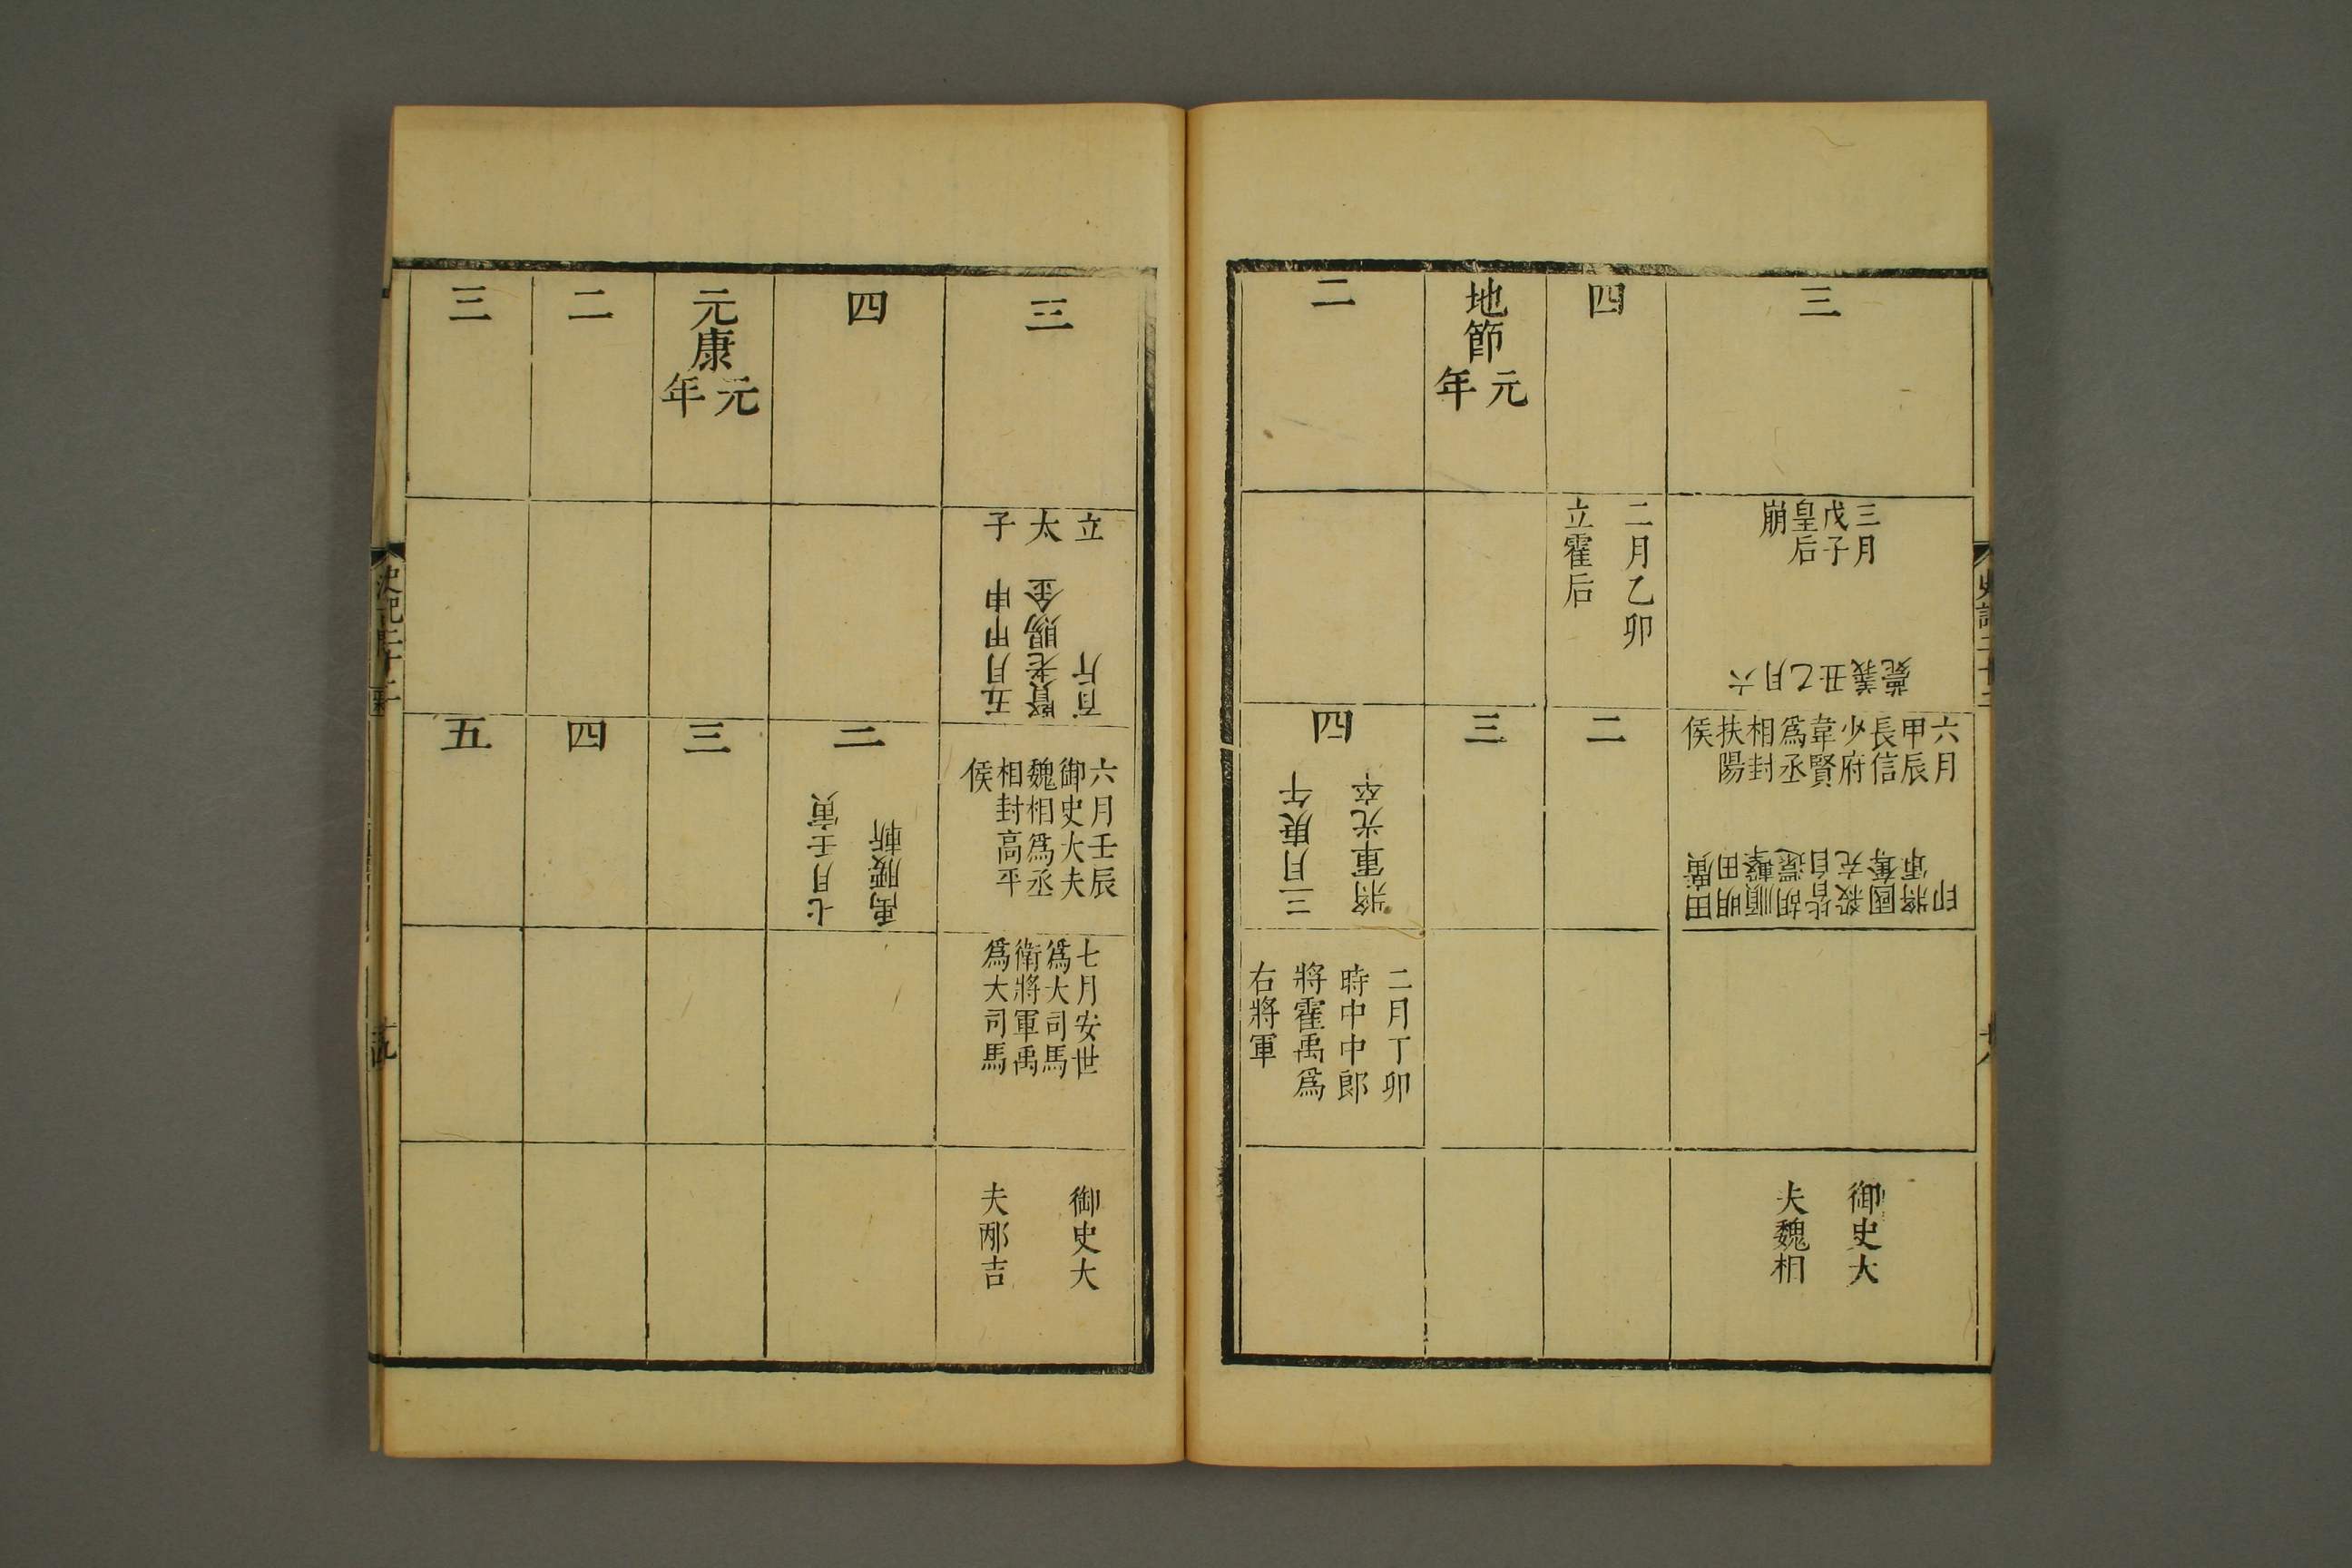 三
三月
戊子
皇后
崩
六月乙丑義薨
六月
甲辰
長信
少府
韋賢
爲丞
相封
扶陽
侯
田廣
明田
順擊
胡還
皆自
殺充
國奪
將軍
印
御史大
夫魏相
四
二月乙卯
立霍后
二
地節元年
三
二
四
三月庚午
將軍光卒
二月丁卯
時中中郎
將霍禹爲
右將軍
三
立
太
子
五月甲申
賢老賜金
百斤
六月壬辰
御史大夫
魏相爲丞
相封高平
侯
七月安世
爲大司馬
衛將軍禹
爲大司馬
御史大
夫邴吉
四
二
七月壬寅
禹腰斬
元康元年
三
二
四
三
五
史記二十二